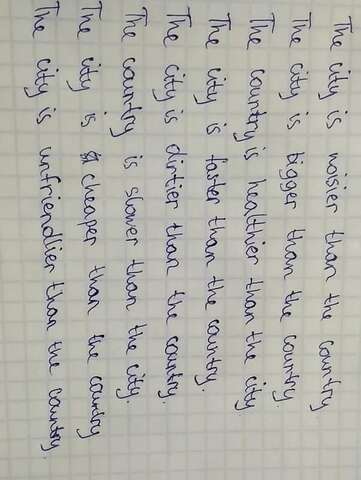 The city is noisier than the country.
The city is bigger than the country.
The country is healthier than the city
The city is faster than the country.
The city is dirtier than the country.
The country is slower than the city.
The city is cheaper than the country
The city is unfriendlier than the country.